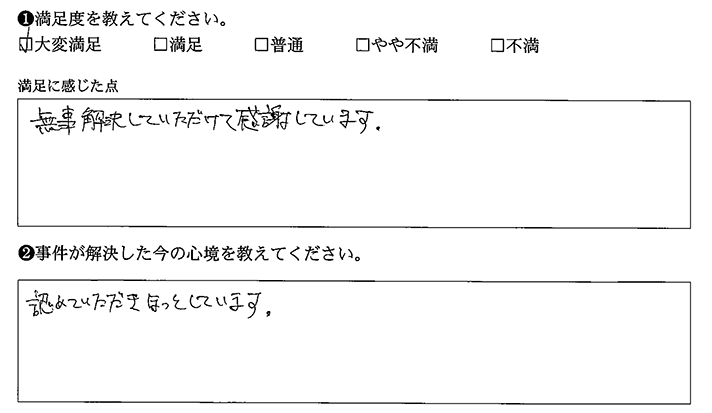 ❶満足度を教えてください。
☑大変満足 □満足 □普通 □やや不満 □不満
満足に感じた点
無事解決していただけて感謝しています。
❷事件が解決した今の心境を教えてください。
認めていただきほっとしています。